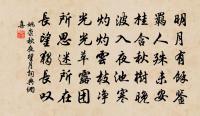 明月有餘鑒
羈人殊未安
桂含秋樹晚
波入夜池寒
灼灼雲枝淨
光光草露團
所思迷所在
長望獨長嘆
姚崇秋夜望月詞典網